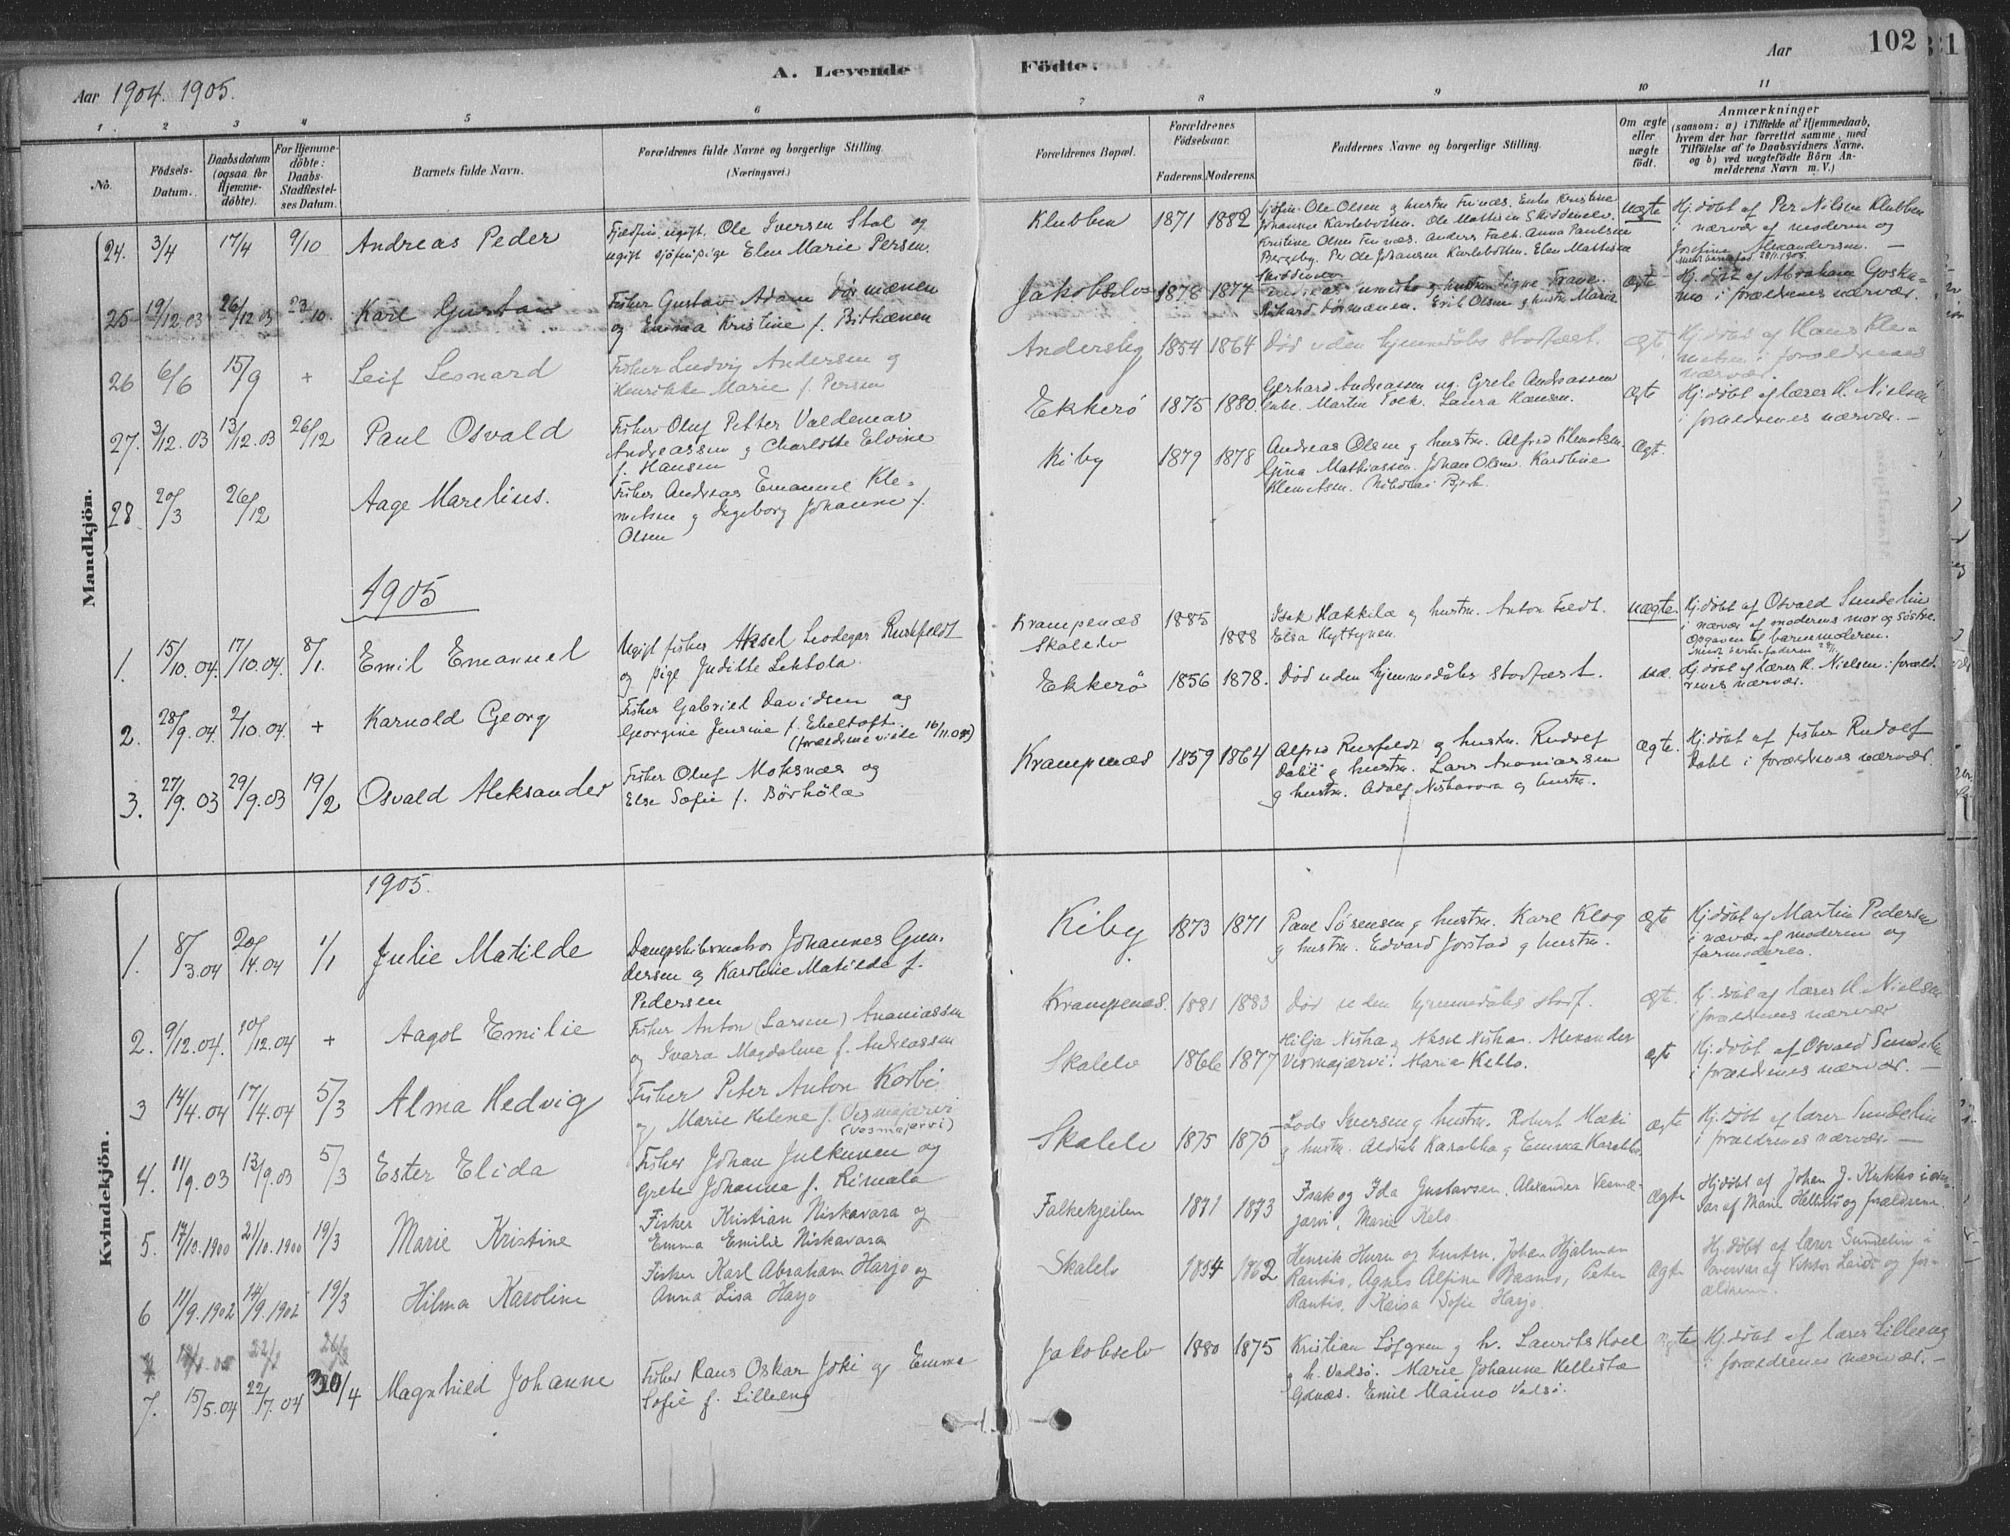 102
Aar 1904. 1905.
A. Levende Födte.
Aar
1 2 3 4 5 6 7 8 9 10 11
No.
Födsels-Datum.
Daabsdatum (ogsaa for Hjemme-döbte).
For Hjemme-döbte: Daabs-Stadfæstel-ses Datum.
Barnets fulde Navn.
Forældrenes fulde Navne og borgerlige Stilling. (Næringsvei.)
Forældrenes Bopæl.
Forældrenes Födselsaar.
Faderens. Moderens.
Faddernes Navne og borgerlige Stilling.
Om ægte eller uægte födt.
Anmærkninger
(saasom: a) i Tilfælde af Hjemmedaab, hvem der har forrettet samme, med Tilföielse af to Daabsvidners Navne, og b) ved uægtefödte Börn An-melderens Navn m. V.)
Mandkjön.
24. 3/4 17/4 9/10 Andreas Peder
ugift. Ole Iversen Stal og
ugift sjöfinpige Elen Marie Persen.
Klubben 1871 1882
Ole Olsen og hustru Finnæs. Enke Kristine
Johansen Karlebotten. Ole Mathisen Skiddenelv.
Kristine Olsen Finnæs. Anders Falk. Anna Paulsen
Bergeby. Per Ole Johansen Karlebotten. Elen Mathisen
Skiddenelv
uægte
Hj.döbt af Per Nilsen Klubben
i nærvær af moderen og
Josefine Alexandersen. —
25 19/12 03 26/12 03 23/10. Karl Gustav
Fisher Gustav Adam
og Emma Kristine f.
Jakobselv 1878 1877
Erik Olsen og hustru Maria
ægte
Hj.döbt af Abraham
i forældrenes nærvær.
26 6/6 15/9 + Leif Leonard
Fisher Ludvig Andersen og
Henrikke Marie f. Persen
Andersby 1854 1864 Död uden hjemmedåbs stadfæst. ægte
Hj.döbt af Hans Kle-
metsen i forældrenes
nærvær.
27. 3/12. 03 13/12. 03 26/12 Paul Osvald
Fisher Oluf Petter Valdemar
Andreassen og Charlotte Elvine
f. Hansen
Ekkerö 1875 1880.
Gerhard Andreassen ug. Grete Andreassen
Enke. Martin Falk. Laura Hansen.
ægte
Hj.döbt af lærer H. Nielsen
i forældrenes nærvær. —
28 20/3 26/12 Aage Marelius.
Fisher Andreas Emanuel Kle-
metsen og Ingeborg Johanne f.
Olsen
Kiby 1879 1878
Andreas Olsen og hustru. Alfred Klemetsen.
Gina Mathiassen. Johan Olsen. Karoline
Klemetsen. Nikolai
Ægt.
1905
1. 15/10. 04. 17/10. 04. 8/1. Emil Emanuel
Ugift fisher Aksel Leodegar Ruskfeldt
og pige Juditte Lehtola
Krampenæs 1885
Skalelv 1888
Isak Hakkila og hustru. Anton Feldt.
Elsa Kyttynen.
uægte.
Hj.döbt af Osvald Sundelin
i nærvær af moderens mor og söstre.
Opgaven af barnemoderen.
2. 28/9. 04. 2/10. 04. + Karnold Georg
Fisher Gabriel Davidsen og
Georgine Jensine f. Ebeltoft.
(forældrene viede 16/11.04)
Ekkerö 1856 1878. Död uden hjemmedåbs stadfæst.
Hj.döbt af lærer H. Nielsen i foræld-
renes nærvær.
3. 27/9. 03 29/9. 03 19/2 Osvald Aleksander
Fisher Oluf Moksnæs og
Else Sofie f. Börhölä
Krampenæs 1859 1864
Alfred Rusfeldt og hustru. Rudolf
Dahl og hustru. Lars Ananiassen
og hustru. Adolf Niskavara og hustru.
Ægte.
Hj.döbt af fisher Rudolf
Dahl i forældrenes nærvær.
Kvindekjön.
1905.
1. 8/3. 04 20/4. 04 1/1 Julie Matilde
Dampskibsmatros Johannes Gun-
dersen og Karoline Matilde f.
Pedersen
Kiby 1873 1871
Paul Sörensen og hustru. Karl Klog
og hustru. Edvard Jorstad og hustru.
ægte
Hj.döbt af Martin Pedersen
i nævær af moderen og
farmoderen.
2. 9/12. 04. 10/12. 04 + Aagot Emilie
Fisher Anton (Larsen) Ananiassen
og Ivara Magdalena f. Andreassen
Krampenæs. 1881 1883 Död uden hjemmedåbs stadf. ægte.
Hj.döbt af lærer H. Nielsen
i forældrenes nærvær
3 14/4. 04 17/4. 04 5/3 Alma Hedvig
Fisher Peter Anton Korbi
og Marie Helene f. Vesmajarvi
(Vesmajervi)
Skalelv 1866 1877
Hilja Niska og Aksel Niska. Alexander
Vesmajärvi. Maria Kello.
ægte
Hj.döbt af Osvald Sundelin
i forældrenes nærvær. —
4. 11/9. 03 13/9. 03 5/3 Ester Elida
Fisher Johan Julkunen og
Grete Johanna f. Rimala
Skalelv 1875 1875
Iversen og hustru. Robert Mæki
og hustru. Aldrik Karakka og Emma Karakka.
ægte
Hj.döbt af lærer Sundelin
i forældrenes nærvær. —
5. 17/10. 1900 21/10. 1900 19/3 Marie Kristine
Fisher Kristian Niskavara og
Emma Emilie Niskavara
Falkekjeilen 1871 1873
Isak og Ida Gustavsen, Alexander Vesma-
jarvi, Marie Kelo
Ægte
Hj.döbt af Johan J. Kukko i nær-
vær af Marie Hellesto og forældrene
6 11/9. 1902 14/9. 1902 19/3 Hilma Karoline
Fisher Karl Abraham Harjo og
Anna Lisa Harjo
Skalelv 1854 1862
Henrik Hurn og hustru, Johan Hjalmar
Rantio, Agnes Alfina Basmo, Peter
Rantio, Kaisa Sofie Harjo.
Ægte
Hj.döbt af lærer Sundelin i
nærvær af Viktor Leidi og for-
ældrene.
7. 15/5. 04 22/7. 04 30/4 Magnhild Johanne
Fisher Hans Oskar Joki og Emma
Sofie f. Lilleeng
Jakobselv 1880 1875
Kristian Löfgren og h. Laurits Hoel
og h. Vadsö. Marie Johanne Kellista
Godnæs. Emil Manno Vadsö.
ægte
Hj.döbt af lærer Lilleeng
i forældrenes nærvær. —